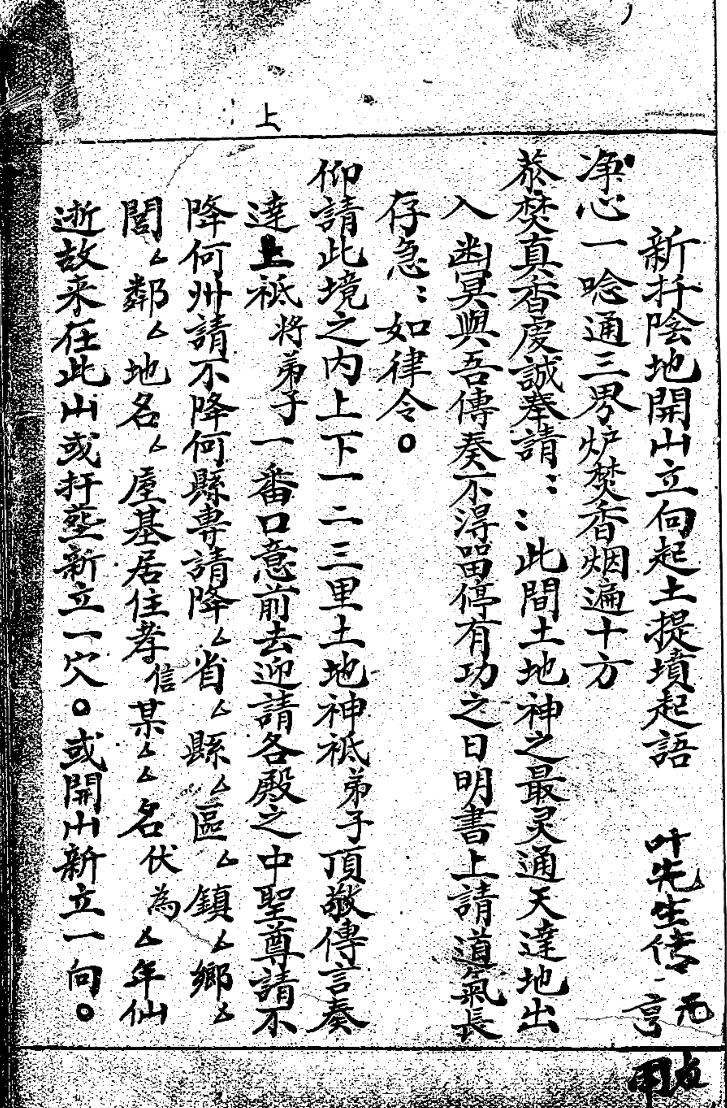 上
新扦陰地開山立向起土提墳起語 叶先生传 元亨
净心一唸通三界炉焚香烟遍十方
恭焚真香虔誠奉請：：此間土地神之最灵通天達地出
入幽冥與吾傳奏不淂畄停有功之日明書上請道氣長
存急：如律令。
仰請此境之内上下一二三里土地神祇弟子頂敬傳言奏
達上祇将弟子一番口意前去迎請各殿之中聖尊請不
降何州請不降何縣専請降厶省厶縣厶區厶鎮厶鄉厶
閭厶鄰厶地名厶屋基居住孝信某厶厶名伏為厶年仙
逝故来在此山或扦塟新立一穴。或開山新立一向。